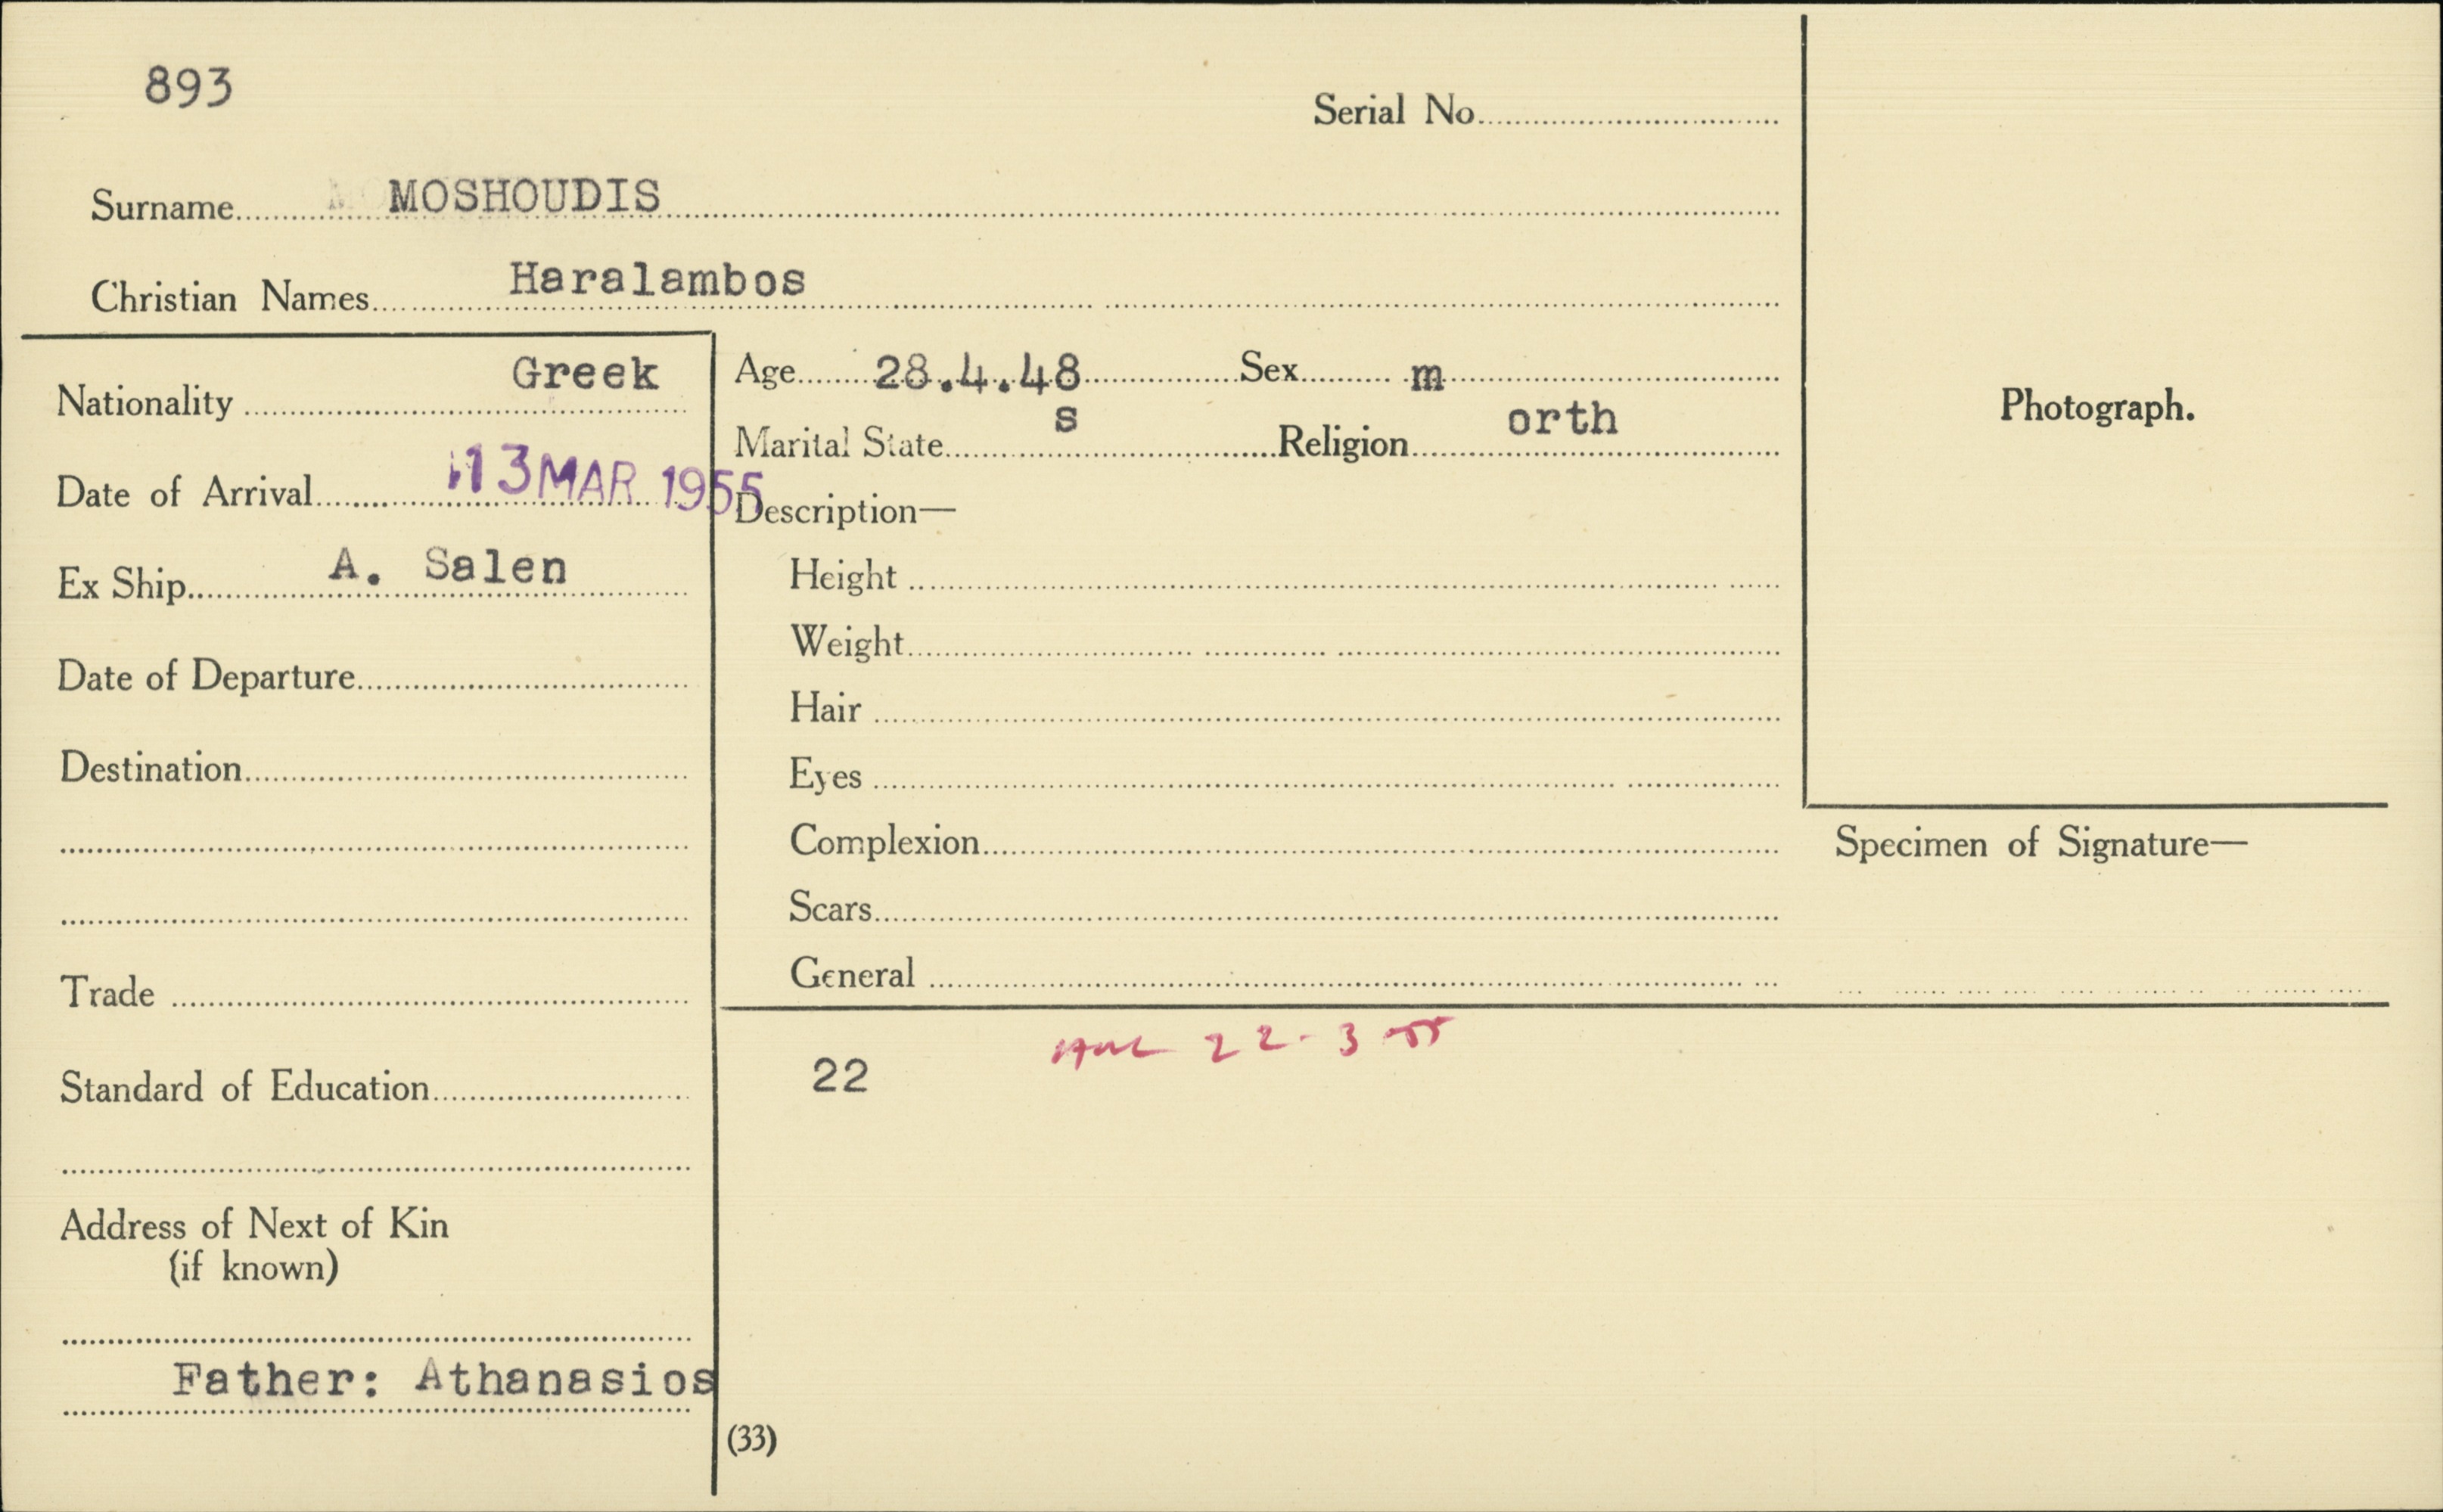 893
Serial No.
Surname MOSHOUDIS
Christian Names Haralambos
Nationality Greek
Date of Arrival 13 MAR 1955
Ex Ship A. Salen
Date of Departure
Destination
Trade
Standard of Education
Address of Next of Kin
(if known)
Father: Athanasios
Age 28.4.48 Sex m
Marital State s Religion orth
Description—
Height
Weight
Hair
Eyes
Complexion
Scars
General
Photograph.
Specimen of Signature—
22-3 55
22
(33)